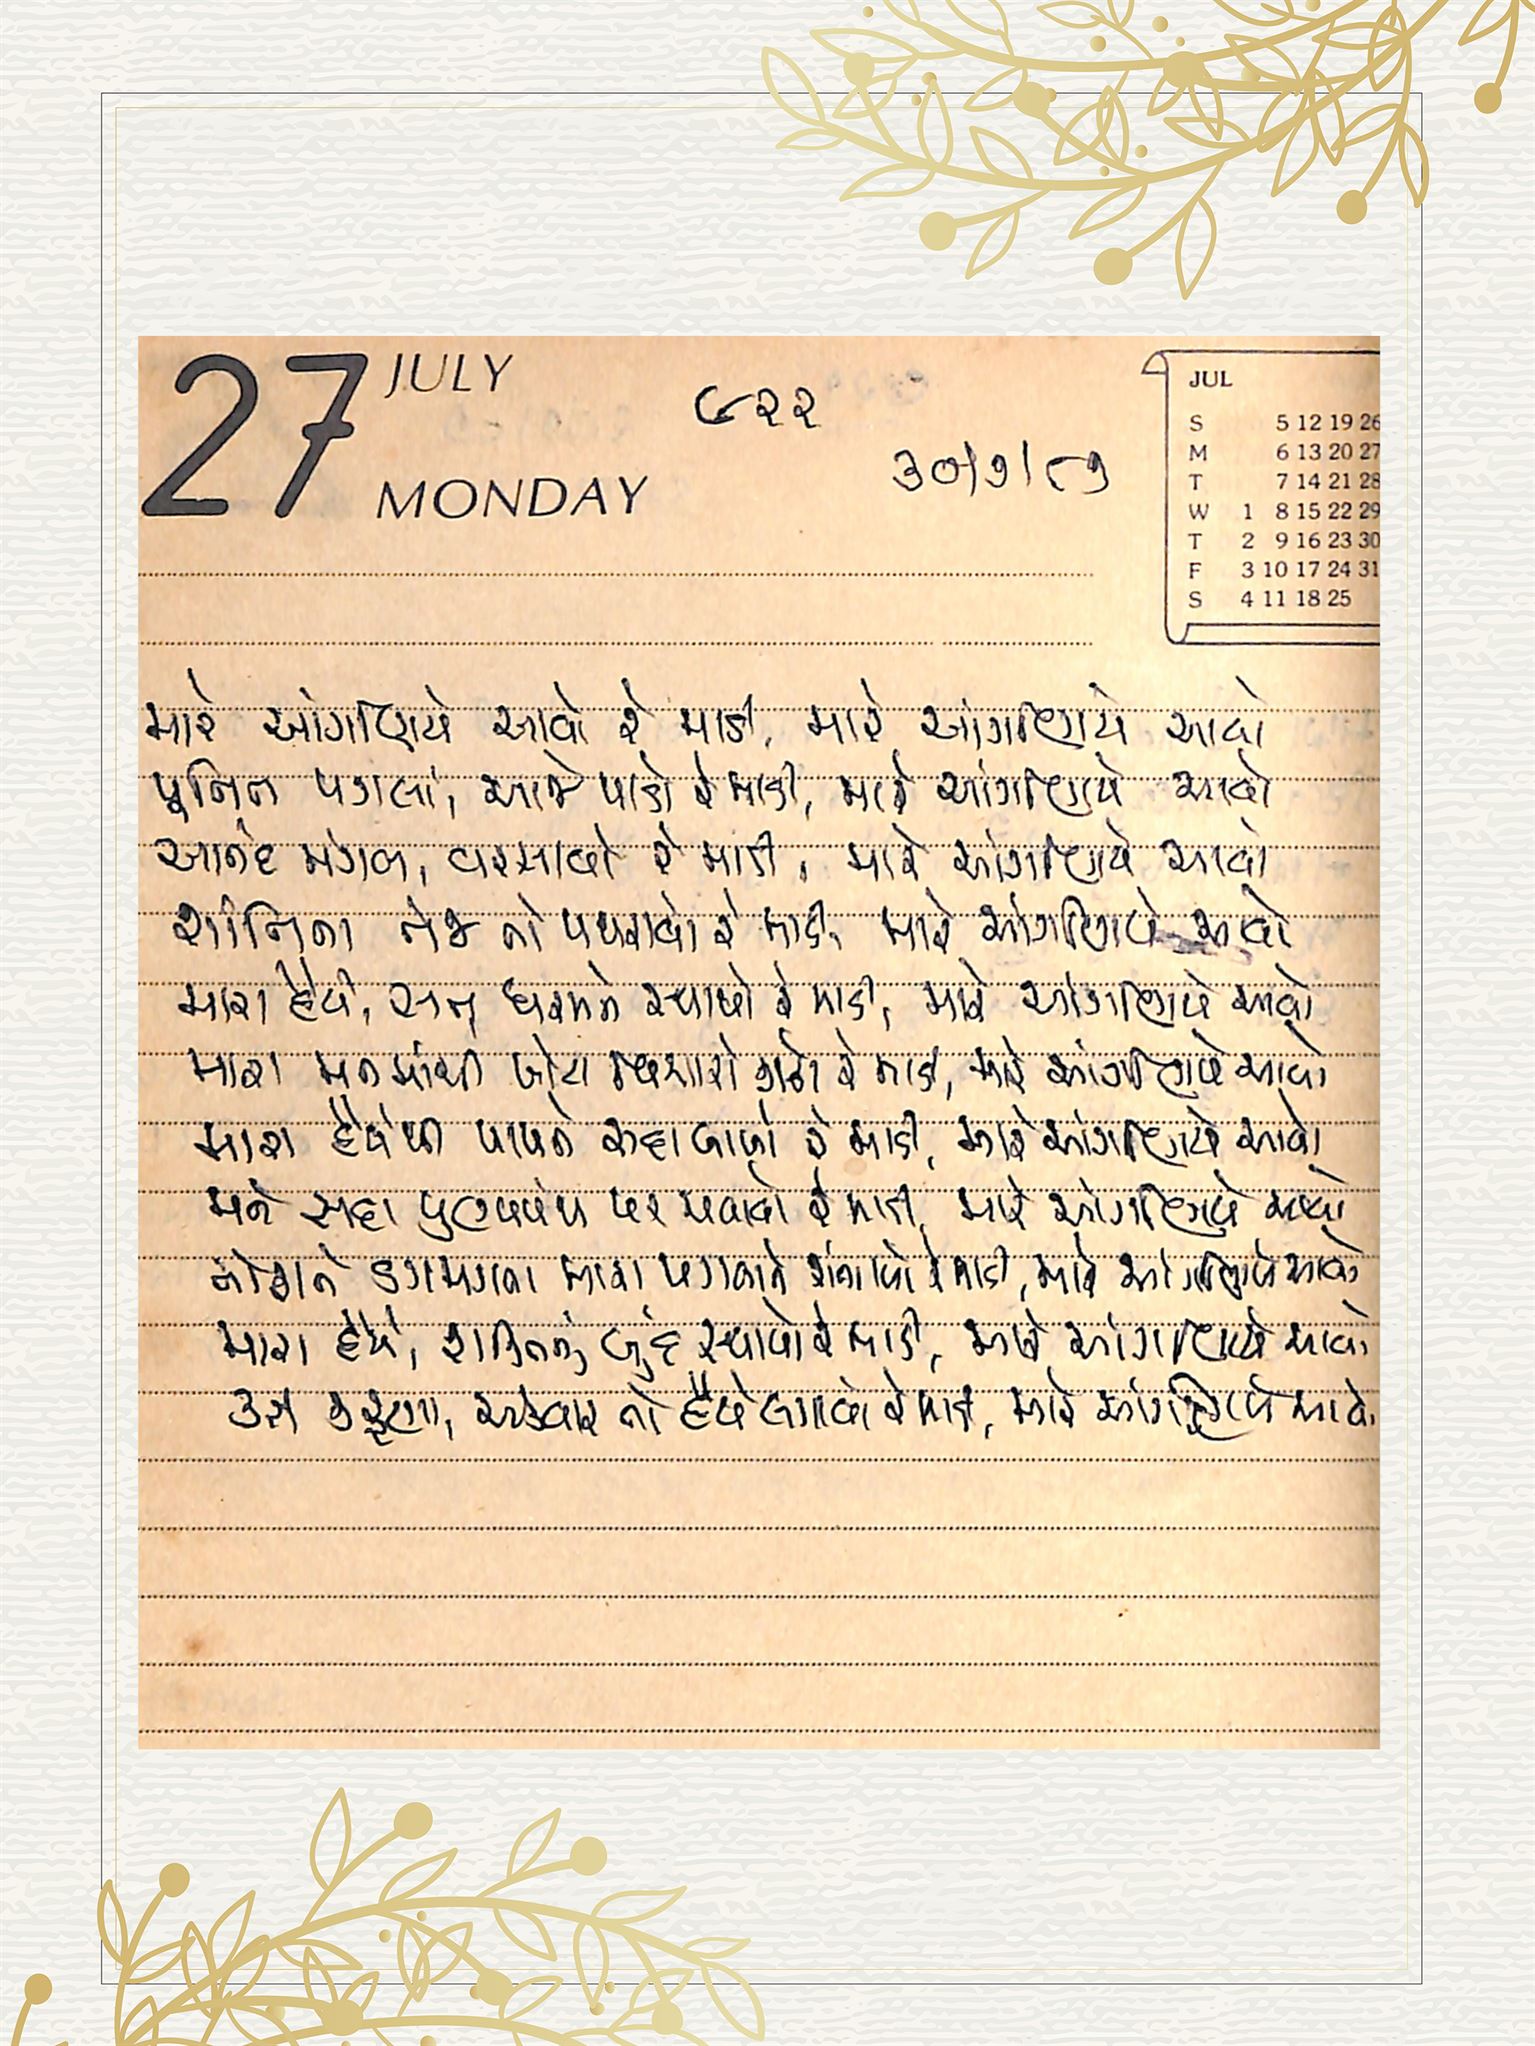 27 JULY
MONDAY
૯૨૨
૩૦/૭/૮૭
JUL
S 5 12 19 26
M 6 13 20 27
T 7 14 21 28
W 1 8 15 22 29
T 2 9 16 23 30
F 3 10 17 24 31
S 4 11 18 25
મારે આંગણિયે આવો રે માડી, મારે આંગણિયે આવો
પુનિત પગલાં, આજે પાડો રે માડી, મારે આંગણિયે આવો
આનંદ મંગલ, વરસાવો રે માડી, મારે આંગણિયે આવો
શાંતિના તેજ તો પથરાવો રે માડી, મારે આંગણિયે આવો
મારા હૈયે, સત્ ધરમને સ્થાપો રે માડી, મારે આંગણિયે આવો
મારા મનમાંથી ખોટા વિચારો કાઢો રે માડી, મારે આંગણિયે આવો
મારા હૈયેથી પાપને સદા બાળો રે માડી, મારે આંગણિયે આવો
મને સદા પુણ્યપંથ પર ચલાવો રે માડી, મારે આંગણિયે આવો
ડગમગતા મારા પગલાને રે માડી, મારે આંગણિયે આવો
મારા હૈયે, શક્તિનું બુંદ સ્થાપો રે માડી, મારે આંગણિયે આવો
કરુણા, તો હૈયે લગાવો રે માડી, મારે આંગણિયે આવો